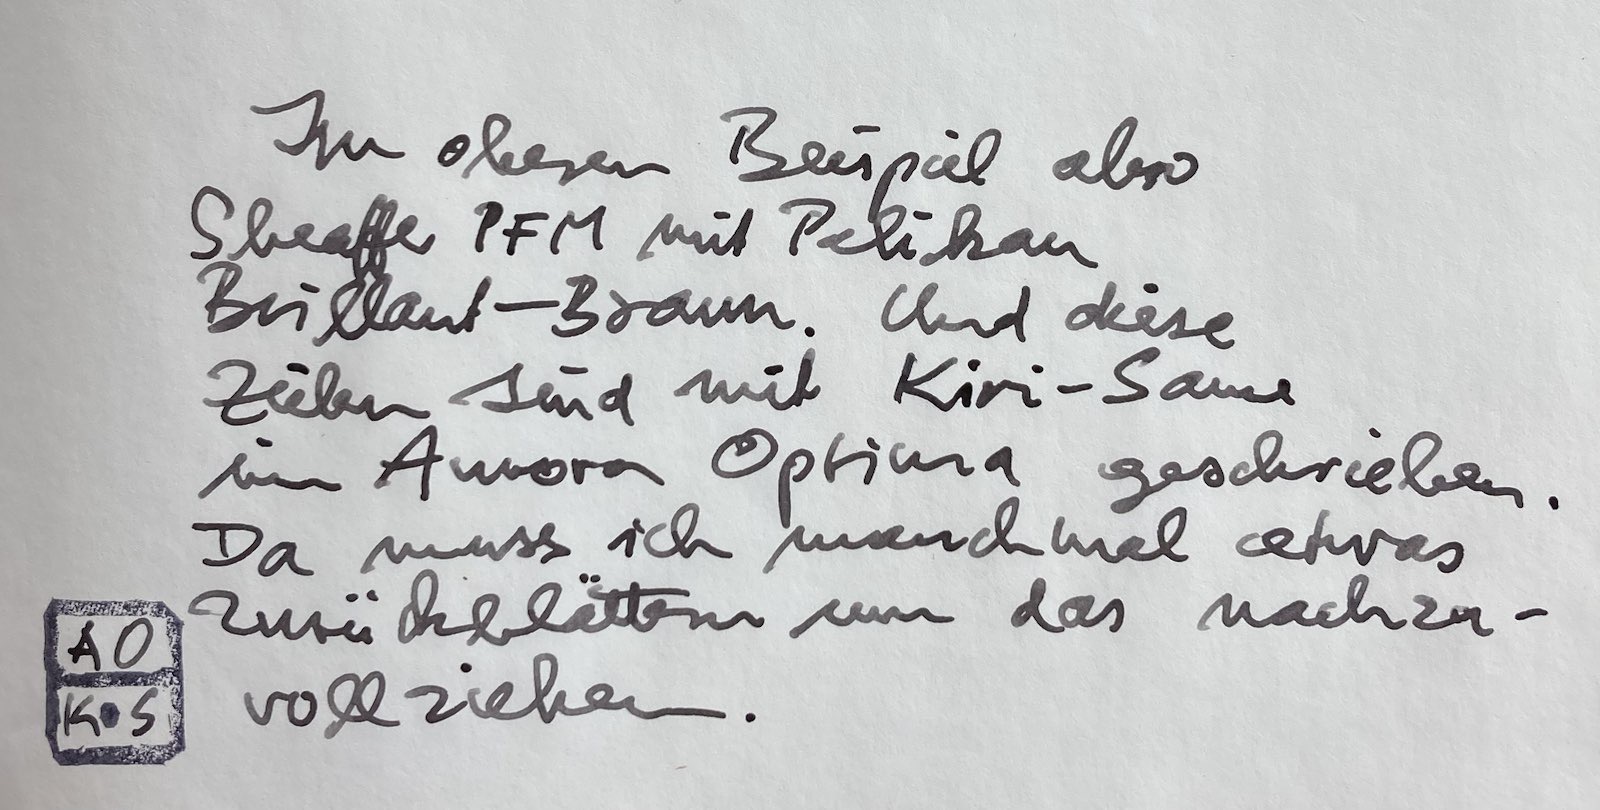 Im oberen Beispiel also
Sheaffer PFM mit Pelikan
Brillant-Braun. Und diese
Zeilen sind mit Kiri-Same
im Aurora Optima geschrieben.
Da muss ich manchmal etwas
zurückblättern um das nachzu-
vollziehen.
AO
K•S